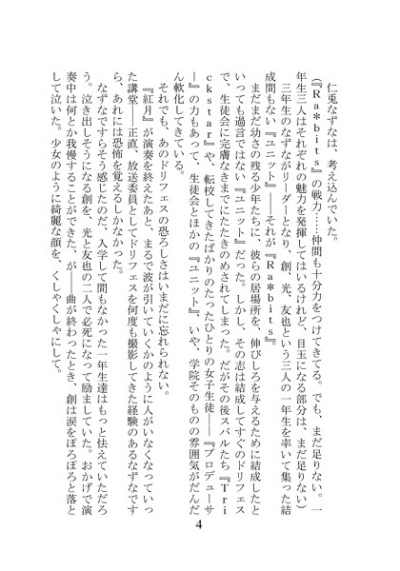 仁兎なずなは、考え込んでいた。
（『Ｒａ*ｂｉｔｓ』の戦力……仲間も十分力をつけてきてる。でも、まだ足りない。一
年生三人はそれぞれの魅力を発揮してはいるけれど、目玉になる部分は、まだ足りない）
三年生のなずながリーダーとなり、創、光、友也という三人の一年生を率いて集った結
成間もない『ユニット』――それが『Ｒａ*ｂｉｔｓ』。
まだまだ幼さの残る少年たちに、彼らの居場所を、伸びしろを与えるために結成したと
いっても過言ではない『ユニット』だった。しかし、その志は結成してすぐのドリフェス
で、生徒会に完膚なきまでにたたきのめされてしまった。だがその後スバルたち『Ｔｒｉ
ｃｋｓｔａｒ』や、転校してきたばかりのたったひとりの女子生徒――『プロデューサ
ー』の力もあって、生徒会とほかの『ユニット』、いや、学院そのものの雰囲気がだんだ
ん軟化してきている。
それでも、あのドリフェスの恐ろしさはいまだに忘れられない。
『紅月』が演奏を終えたあと、まるで波が引いていくかのように人がいなくなっていっ
た講堂――正直、放送委員としてドリフェスを何度も撮影してきた経験のあるなずなです
ら、あれには恐怖を覚えるしかなかった。
なずなですらそう感じたのだ、入学して間もなかった一年生達はもっと怯えていただろ
う。泣き出しそうになる創を、光と友也の二人で必死になって励ましていた。おかげで演
奏中は何とか我慢することができた、が――曲が終わったとき、創は涙をぽろぽろと落と
して泣いた。少女のように綺麗な顔を、くしゃくしゃにして。
4